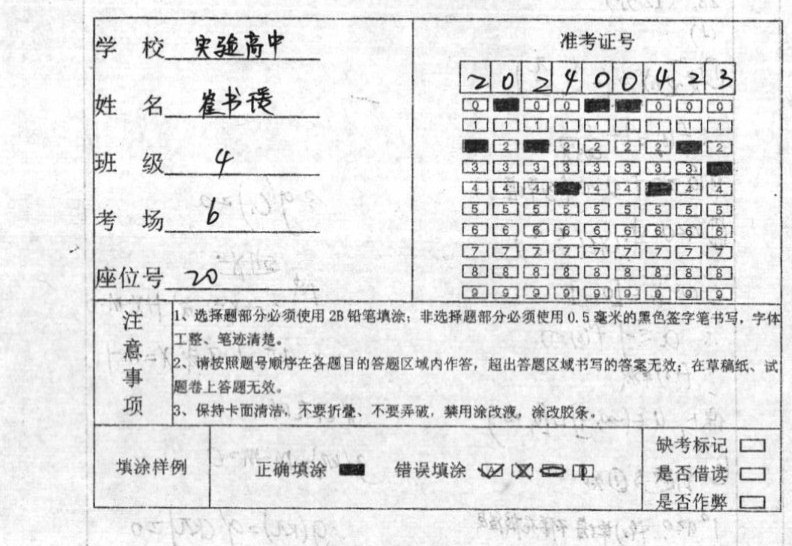 学 校 实验高中
准考证号
2 0 2 4 0 0 4 2 3
姓 名 崔书
班 级 4
考 场 6
座位号 20
0 0 0 0 0 0
1 1 1 1 1 1 1 1 1
2 2 2 2 2 2
3 3 3 3 3 3 3 3
4 4 4 4 4 4 4
5 5 5 5 5 5 5 5 5
6 6 6 6 6 6 6 6 6
7 7 7 7 7 7 7 7 7
8 8 8 8 8 8 8 8 8
9 9 9 9 9 9 9 9 9
注意事项
1、选择题部分必须使用2B铅笔填涂；非选择题部分必须使用0.5毫米的黑色签字笔书写，字体
工整、笔迹清楚。
2、请按照题号顺序在各题目的答题区域内作答，超出答题区域书写的答案无效；在草稿纸、试
题卷上答题无效。
3、保持卡面清洁，不要折叠、不要弄破，禁用涂改液，涂改胶条。
填涂样例 正确填涂 错误填涂
缺考标记
是否借读
是否作弊